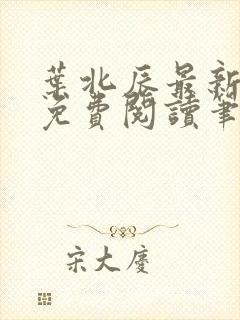 葉北辰最新
免費閱讀筆
宋大慶